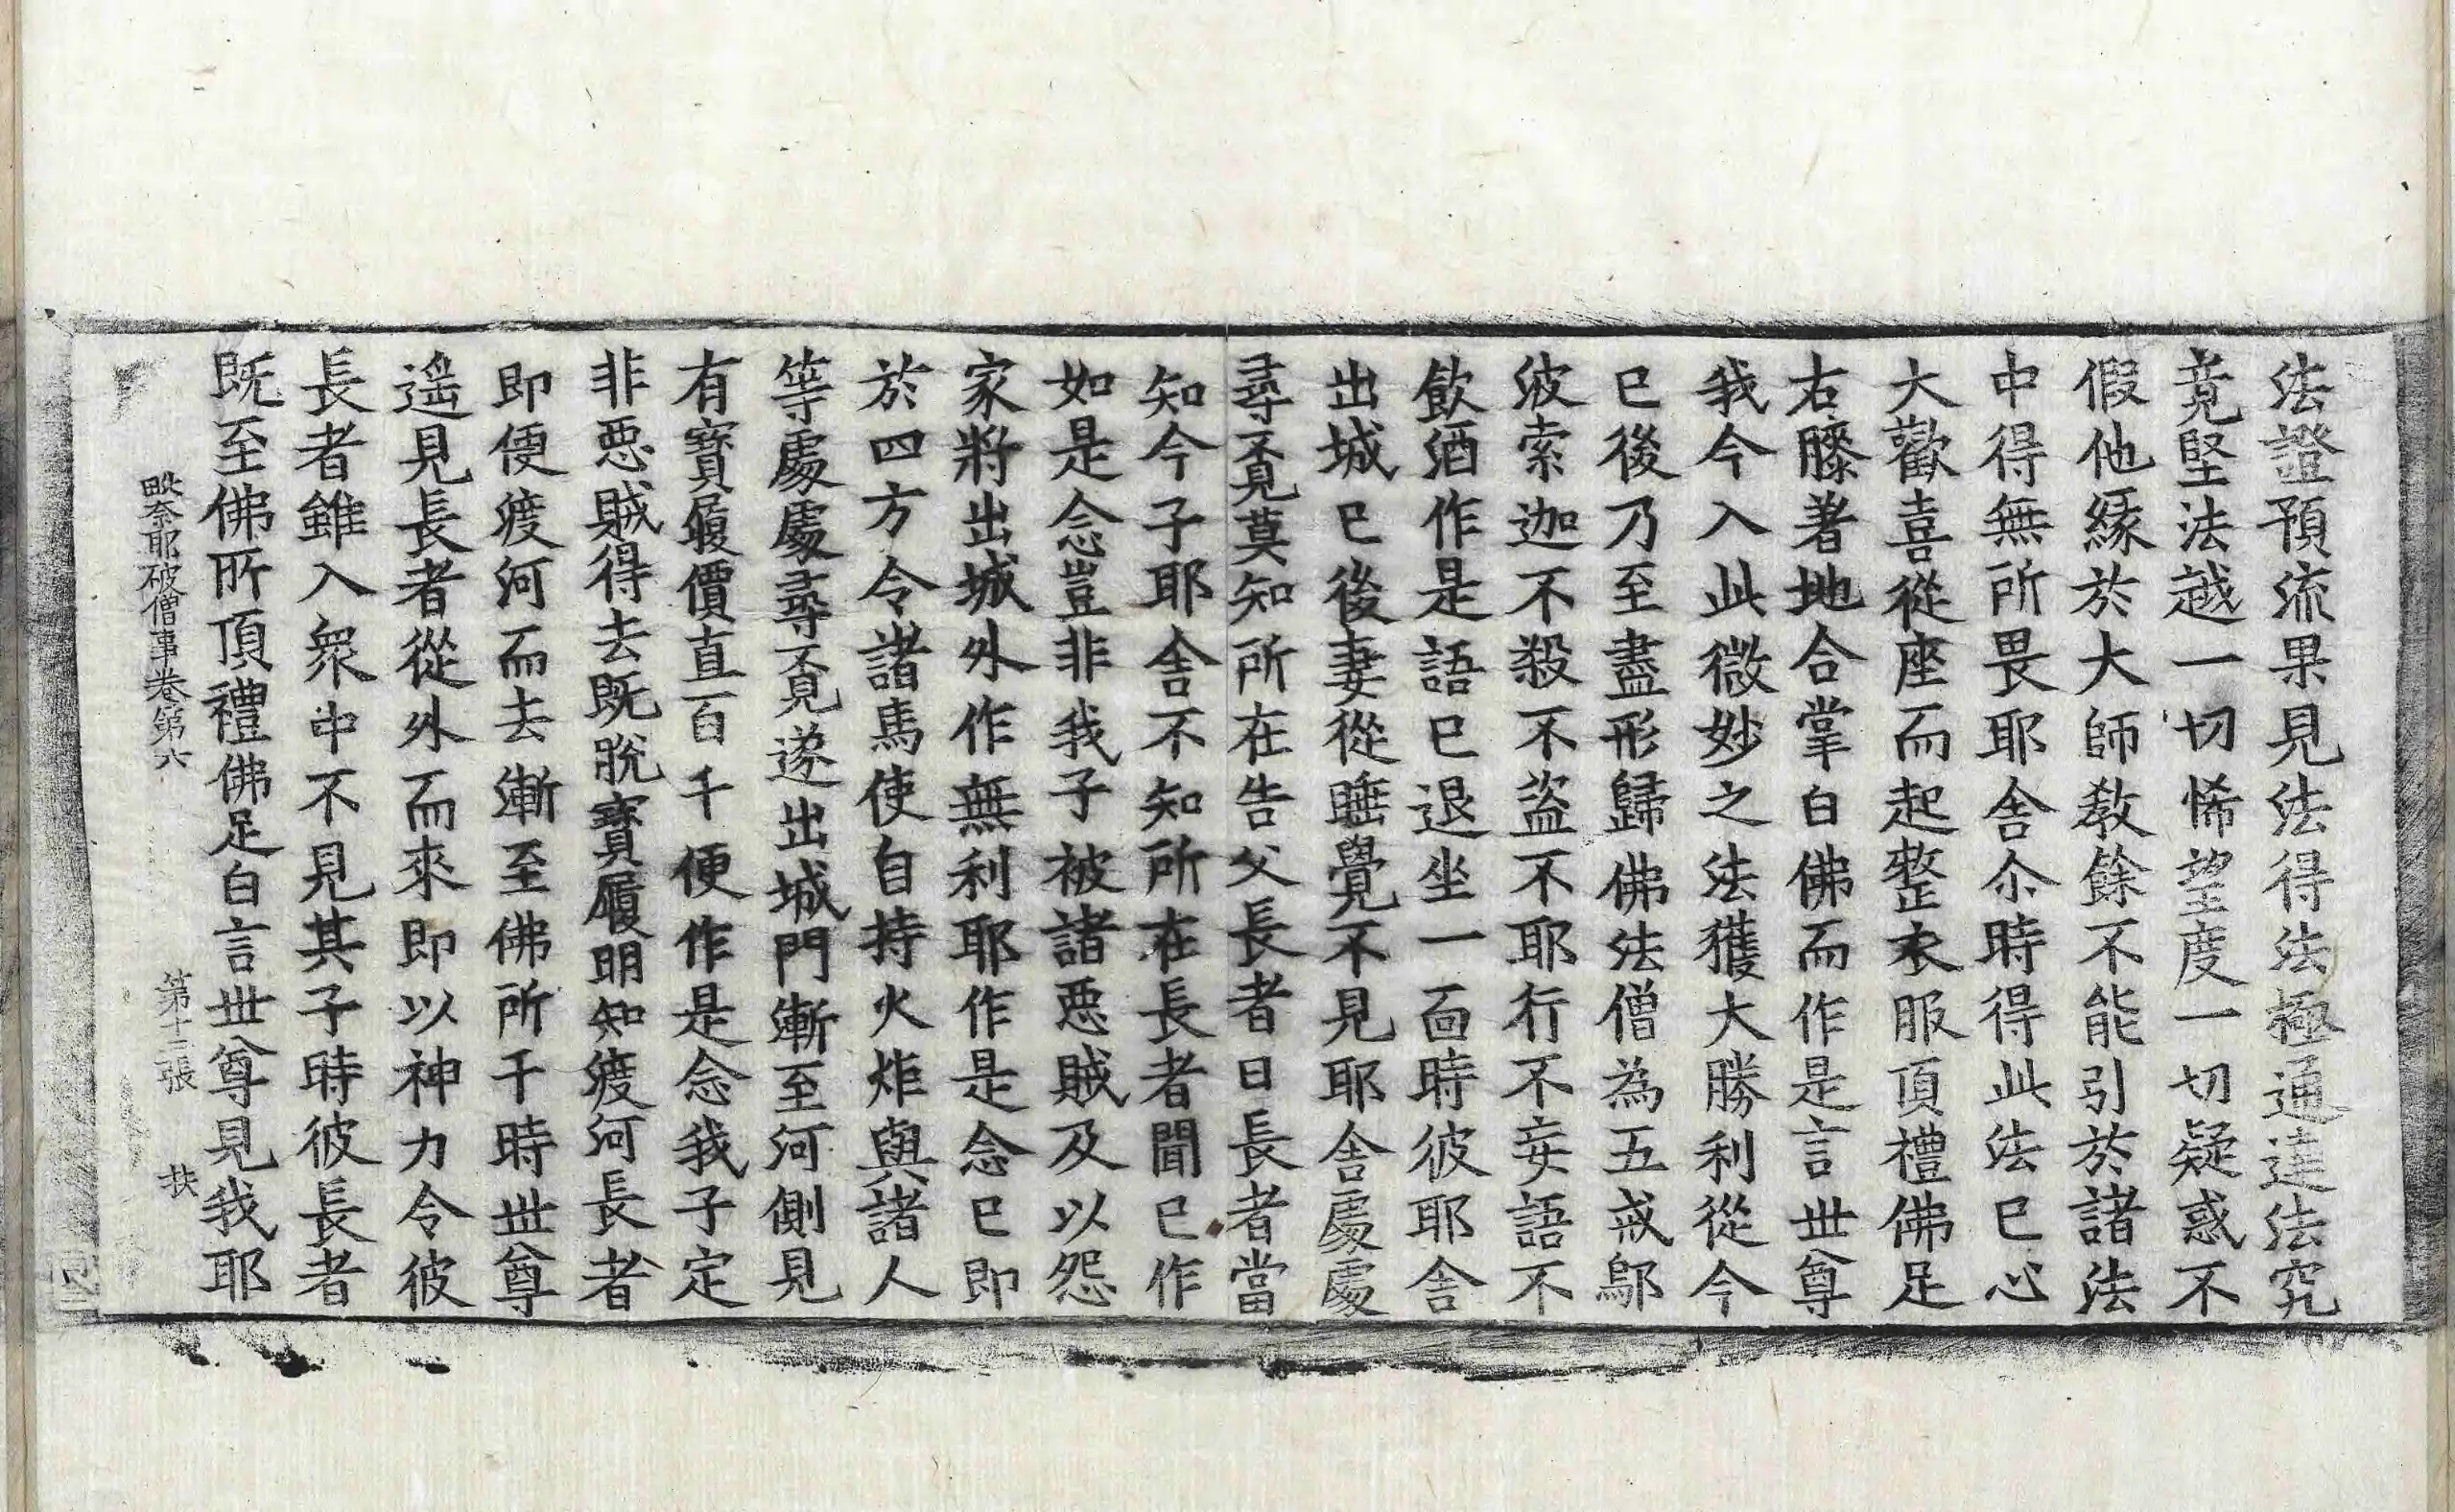 法證預流果見法得法極通達法究
竟堅法越一切悕望度一切疑惑不
假他緣於大師教餘不能引於諸法
中得無所畏耶舍尒時得此法已心
大歡喜從座而起整衣服頂禮佛足
右膝著地合掌白佛而作是言世尊
我今入此微妙之法獲大勝利從今
已後乃至盡形歸佛法僧為五戒鄔
波索迦不殺不盜不耶行不妄語不
飲酒作是語已退坐一面時彼耶舍
出城已後妻從睡覺不見耶舍處處
尋覔莫知所在告父長者曰長者當
知今子耶舍不知所在長者聞已作
如是念豈非我子被諸惡賊及以怨
家將出城外作無利耶作是念已即
於四方令諸馬使自持火炬與諸人
等處處尋覔遂出城門漸至河側見
有寶履價直百千便作是念我子定
非惡賊得去既脫寶履明知渡河長者
即便渡河而去漸至佛所于時世尊
遥見長者從外而來即以神力令彼
長者雖入衆中不見其子時彼長者
既至佛所頂禮佛足白言世尊見我耶
毗奈耶破僧事卷第六 第十三張 扶